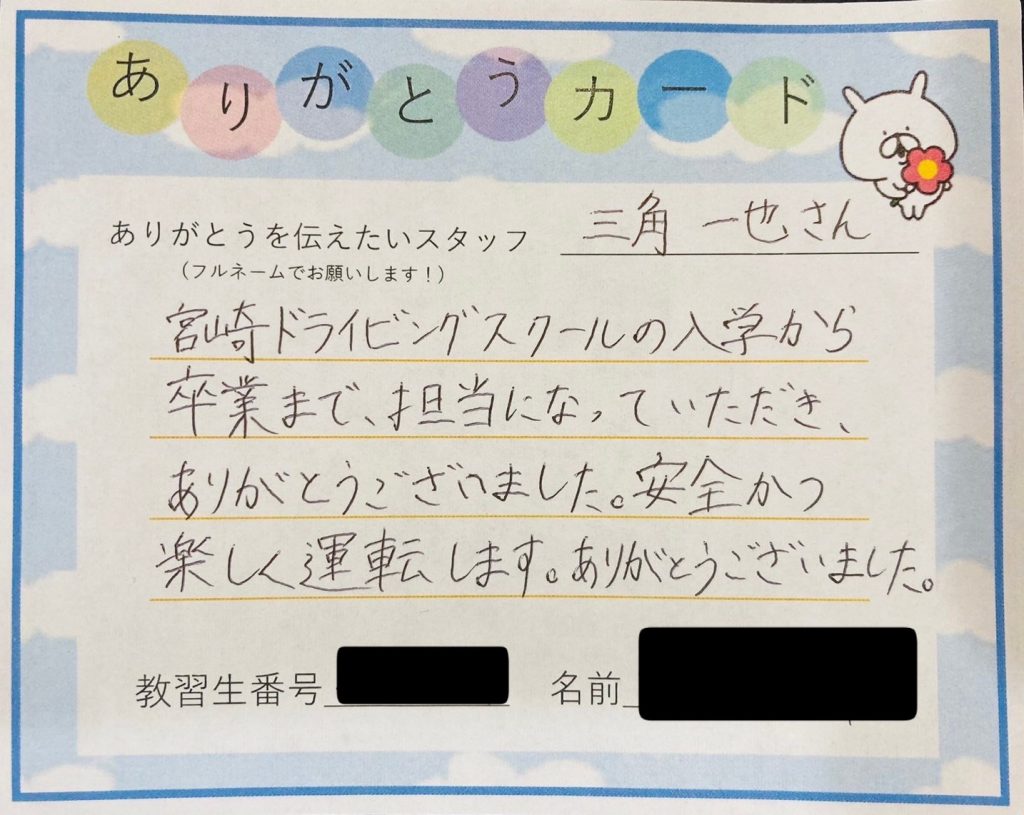 ありがとうカード
ありがとうを伝えたいスタッフ 三角 一也さん
(フルネームでお願いします!)
宮崎ドライビングスクールの入学から
卒業まで、担当になっていただき、
ありがとうございました。安全かつ
楽しく運転します。ありがとうございました。
教習生番号 名前